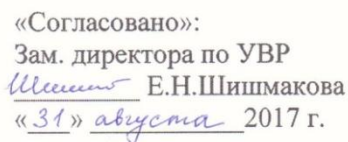 «Согласовано»:
Зам. директора по УВР
Шишм Е.Н.Шишмакова
«31» августа 2017 г.